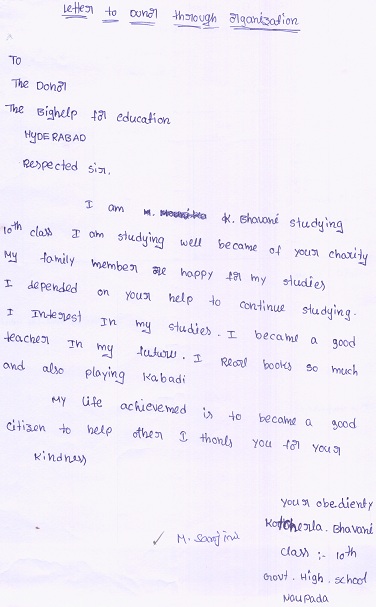 Letter to Donor through organization
To
The Donor
The Bighelp for education
HYDERABAD
Respected sir.
I am K. Bhavani studying
10th class I am studying well became of your charity
My family member are happy for my studies
I depended on your help to continue studying.
I Interest In my studies. I became a good
teacher In my future. I Read books so much
and also playing Kabadi
My life achievemed is to became a good
citizen to help other I thonks you for your
kindness
your obedienty
Kotcherla. Bhavani
class :- 10th
Govt. High. school
Noupada
✓ M. Sarojini